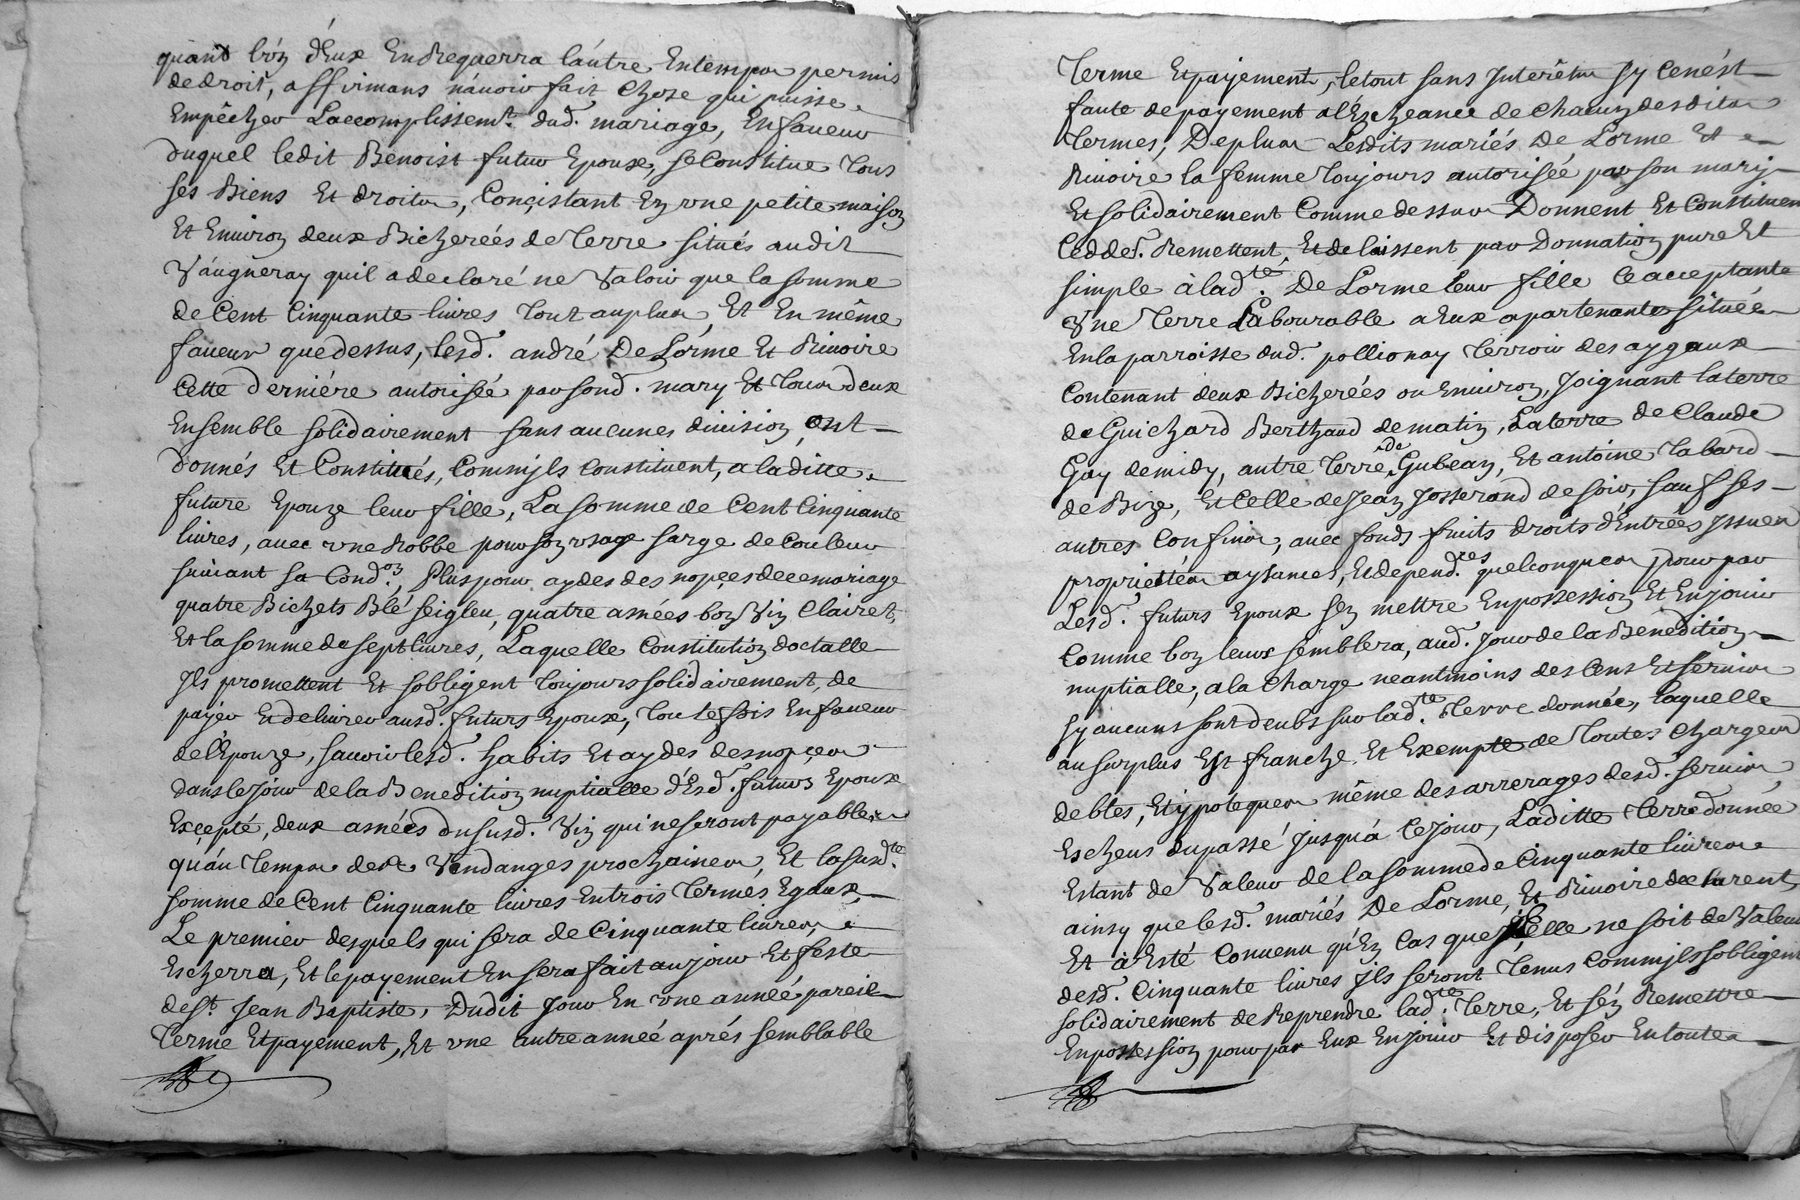 quand l'ún d'Eux En Requerra láutre, Entemps permis
de droit, affirmans n'avoir fait Chose qui puisse
Empêcher Laccomplissemt. dud. mariage, En faveur
duquel ledit Benoist futur Epoux, se Constitue Tous
ses Biens Et droits, Conçistant En vne petite maison
Et Environ deux Bicherées de Terre situés audit
Vaugneray quil a declaré ne Valoir que la somme
de Cent Cinquante livres Tout au plus Et En même
faveur que dessus, lesd. andré De Lorme Et Rivoire
Cette derniére autorisée par sond. mary Et Tous deux
Ensemble solidairement sans aucunes division, ont
donnés Et Constitués, Comm'jls Constituent, a laditte
future Epouze leur fille, La somme de Cent Cinquante
livres, avec vne Robbe pour son vsage sarge de Couleur
suivant sa Condon., Plus pour aydes des nopçes de ce mariage
quatre Bichets Blé seigle, quatre asnées bon Vin Clairet,
Et la somme de sept livres, Laquelle Constitution doctalle
Jls promettent Et sobligent Toujours solidairement, de
payer Et delivrer ausd. futurs Epoux, Toutefois En faveur
de l'Epouze, sçavoir lesd. habits Et aydes des nopçes
dans le jour de la Benedition nuptialle d'Esd. futurs Epoux
Exçepté, deux asnées du susd. Vin qui ne seront payables
qu'áu Temps des Vendanges prochaines, Et la susdte.
somme de Cent Cinquante livres En trois Termes Egaux,
Le premier desquels qui sera de Cinquante livres,
Escherra, Et le payement En sera fait au jour Et feste
de St. Jean Baptiste, Dudit Jour En vne année pareil
Terme Et payement, Et vne autre année aprés semblable
Terme Et payement, le tout sans Interêts sy Ce n'ést
faute de payement a l'Escheance de Chacun desdits
Termes; De plus Lesdits mariés De Lorme Et
Rivoire la femme Toujours autorisée par son mary
Et solidairement Comme dessus Donnent Et Constituent
Ceddet. Remettent, Et delaissent par Donnation pure Et
simple à ladte. De Lorme leur fille Ce acceptante
Vne Terre Labourable a Eux apartenante située
En la parroisse dud. pollionay Terroir des aygaux
Contenant deux Bicherées ou Environ, Joignant la terre
de Guichard Berthaud de matin, La terre de Claude
Gay de midy, autre Terre de Gubean, Et antoine Tabard
de Bize, Et Celle de Jean Josserand de soir, sauf ses
autres Confins, avec fonds fruits droits d'Entrées Issues
proprietés aysances, Et dependces. quelconques pour par
Lesd. futurs Epoux s'En mettre En possession Et En jouir
Comme bon leurs semblera, aud. Jour de la Benedition
nuptialle, a la Charge neantmoins des Cens Et servis
sy aucuns sont deubs sur ladte. Terre donnée, laquelle
au surplus Est franche Et Exempte de Toutes Charges
debtes, Et ypoteques même des arrerages desd. servis
Escheus du passé Jusqu'à Ce jour, Laditte Terre donnée
Estant de Valeur de la somme de Cinquante livres
ainsy que lesd. mariés De Lorme, Et Rivoire declarent
Et à Esté Convenu qu'En Cas que Elle ne soit de Valeur
desd. Cinquante livres Jls seront Tenus Comm'jls sobligent
solidairement de Reprendre ladte. Terre, Et s'én Remettre
En possession pour par Eux En jouir Et disposer En toute